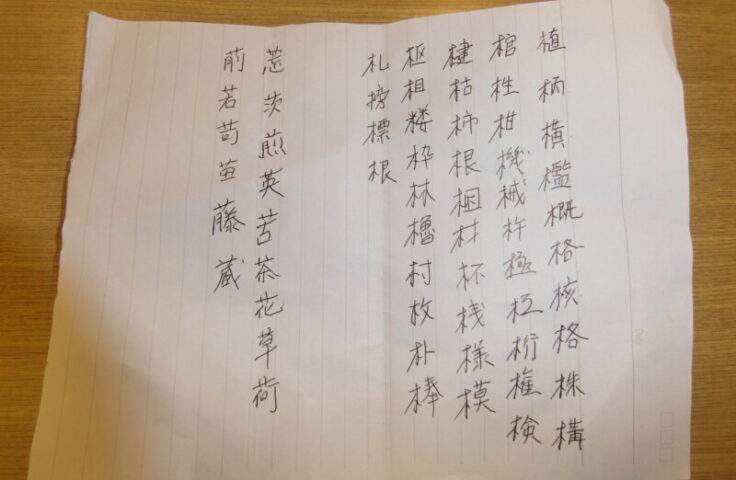 植柄横檻概格核格株構
棺性柑機械杵極枢桁権検
楗枯柿根梱材杯桟様模
枢相楼枠林櫓村枚朴棒
札榜標根
惹茨煎英苦茶花草荷
前若苛苗藤蔵